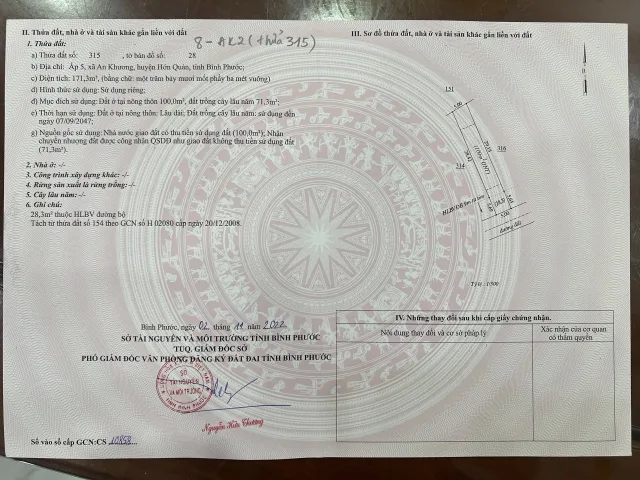 II. Thửa đất, nhà ở và tài sản khác gắn liền với đất
8 - AK2 (thửa 315)
1. Thửa đất:
a) Thửa đất số: 315 , tờ bản đồ số: 28
b) Địa chỉ: Ấp 5, xã An Khương, huyện Hớn Quản, tỉnh Bình Phước;
c) Diện tích: 171,3m², (bằng chữ: một trăm bảy mươi mốt phẩy ba mét vuông)
d) Hình thức sử dụng: Sử dụng riêng;
đ) Mục đích sử dụng: Đất ở tại nông thôn 100,0m², đất trồng cây lâu năm 71,3m²;
e) Thời hạn sử dụng: Đất ở tại nông thôn: Lâu dài; Đất trồng cây lâu năm: sử dụng đến
ngày 07/09/2047;
g) Nguồn gốc sử dụng: Nhà nước giao đất có thu tiền sử dụng đất (100,0m²); Nhận
chuyển nhượng đất được công nhận QSDĐ như giao đất không thu tiền sử dụng đất
(71,3m²).
2. Nhà ở: -/-
3. Công trình xây dựng khác: -/-
4. Rừng sản xuất là rừng trồng: -/-
5. Cây lâu năm: -/-
6. Ghi chú:
28,3m² thuộc HLBV đường bộ
Tách từ thửa đất số 154 theo GCN số H 02080 cấp ngày 20/12/2008.
Bình Phước, ngày 02 tháng 11 năm 2022
SỞ TÀI NGUYÊN VÀ MÔI TRƯỜNG TỈNH BÌNH PHƯỚC
TUQ. GIÁM ĐỐC SỞ
PHÓ GIÁM ĐỐC VĂN PHÒNG ĐĂNG KÝ ĐẤT ĐAI TỈNH BÌNH PHƯỚC
SỞ
TÀI NGUYÊN
VÀ MÔI TRƯỜNG
TỈNH BÌNH PHƯỚC
Nguyễn Hữu Thường
Số vào sổ cấp GCN:CS 10858
III. Sơ đồ thửa đất, nhà ở và tài sản khác gắn liền với đất
B
151
5.00
316
314
(171.3)
5.00
đường đất
Tỷ lệ: 1/500
IV. Những thay đổi sau khi cấp giấy chứng nhận.
Nội dung thay đổi và cơ sở pháp lý
Xác nhận của cơ quan
có thẩm quyền